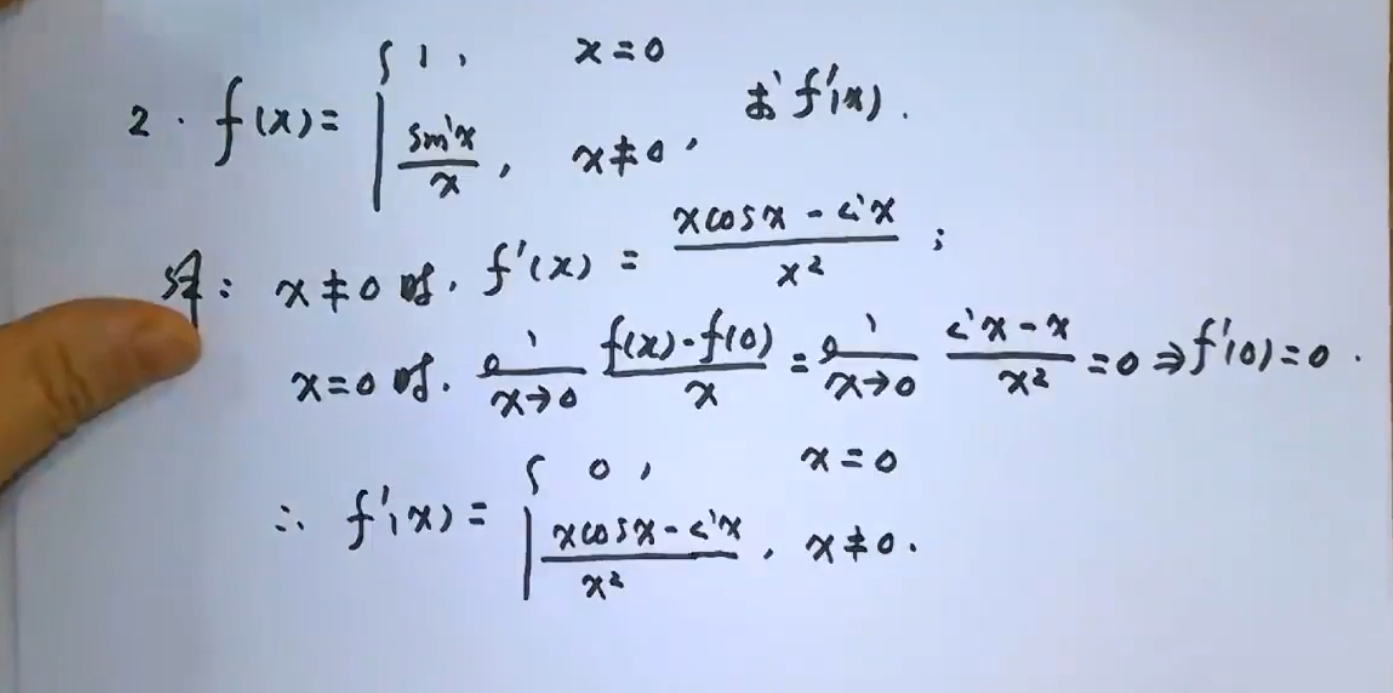 2. f(x)= { 1, x=0
sinx/x, x≠0, 求f'(x).
解: x≠0时, f'(x) = (xcosx - sinx)/x² ;
x=0时, lim x→0 (f(x)-f(0))/x = lim x→0 (sinx-x)/x² =0 ⇒ f'(0)=0.
∴ f'(x)= { 0, x=0
(xcosx-sinx)/x², x≠0.